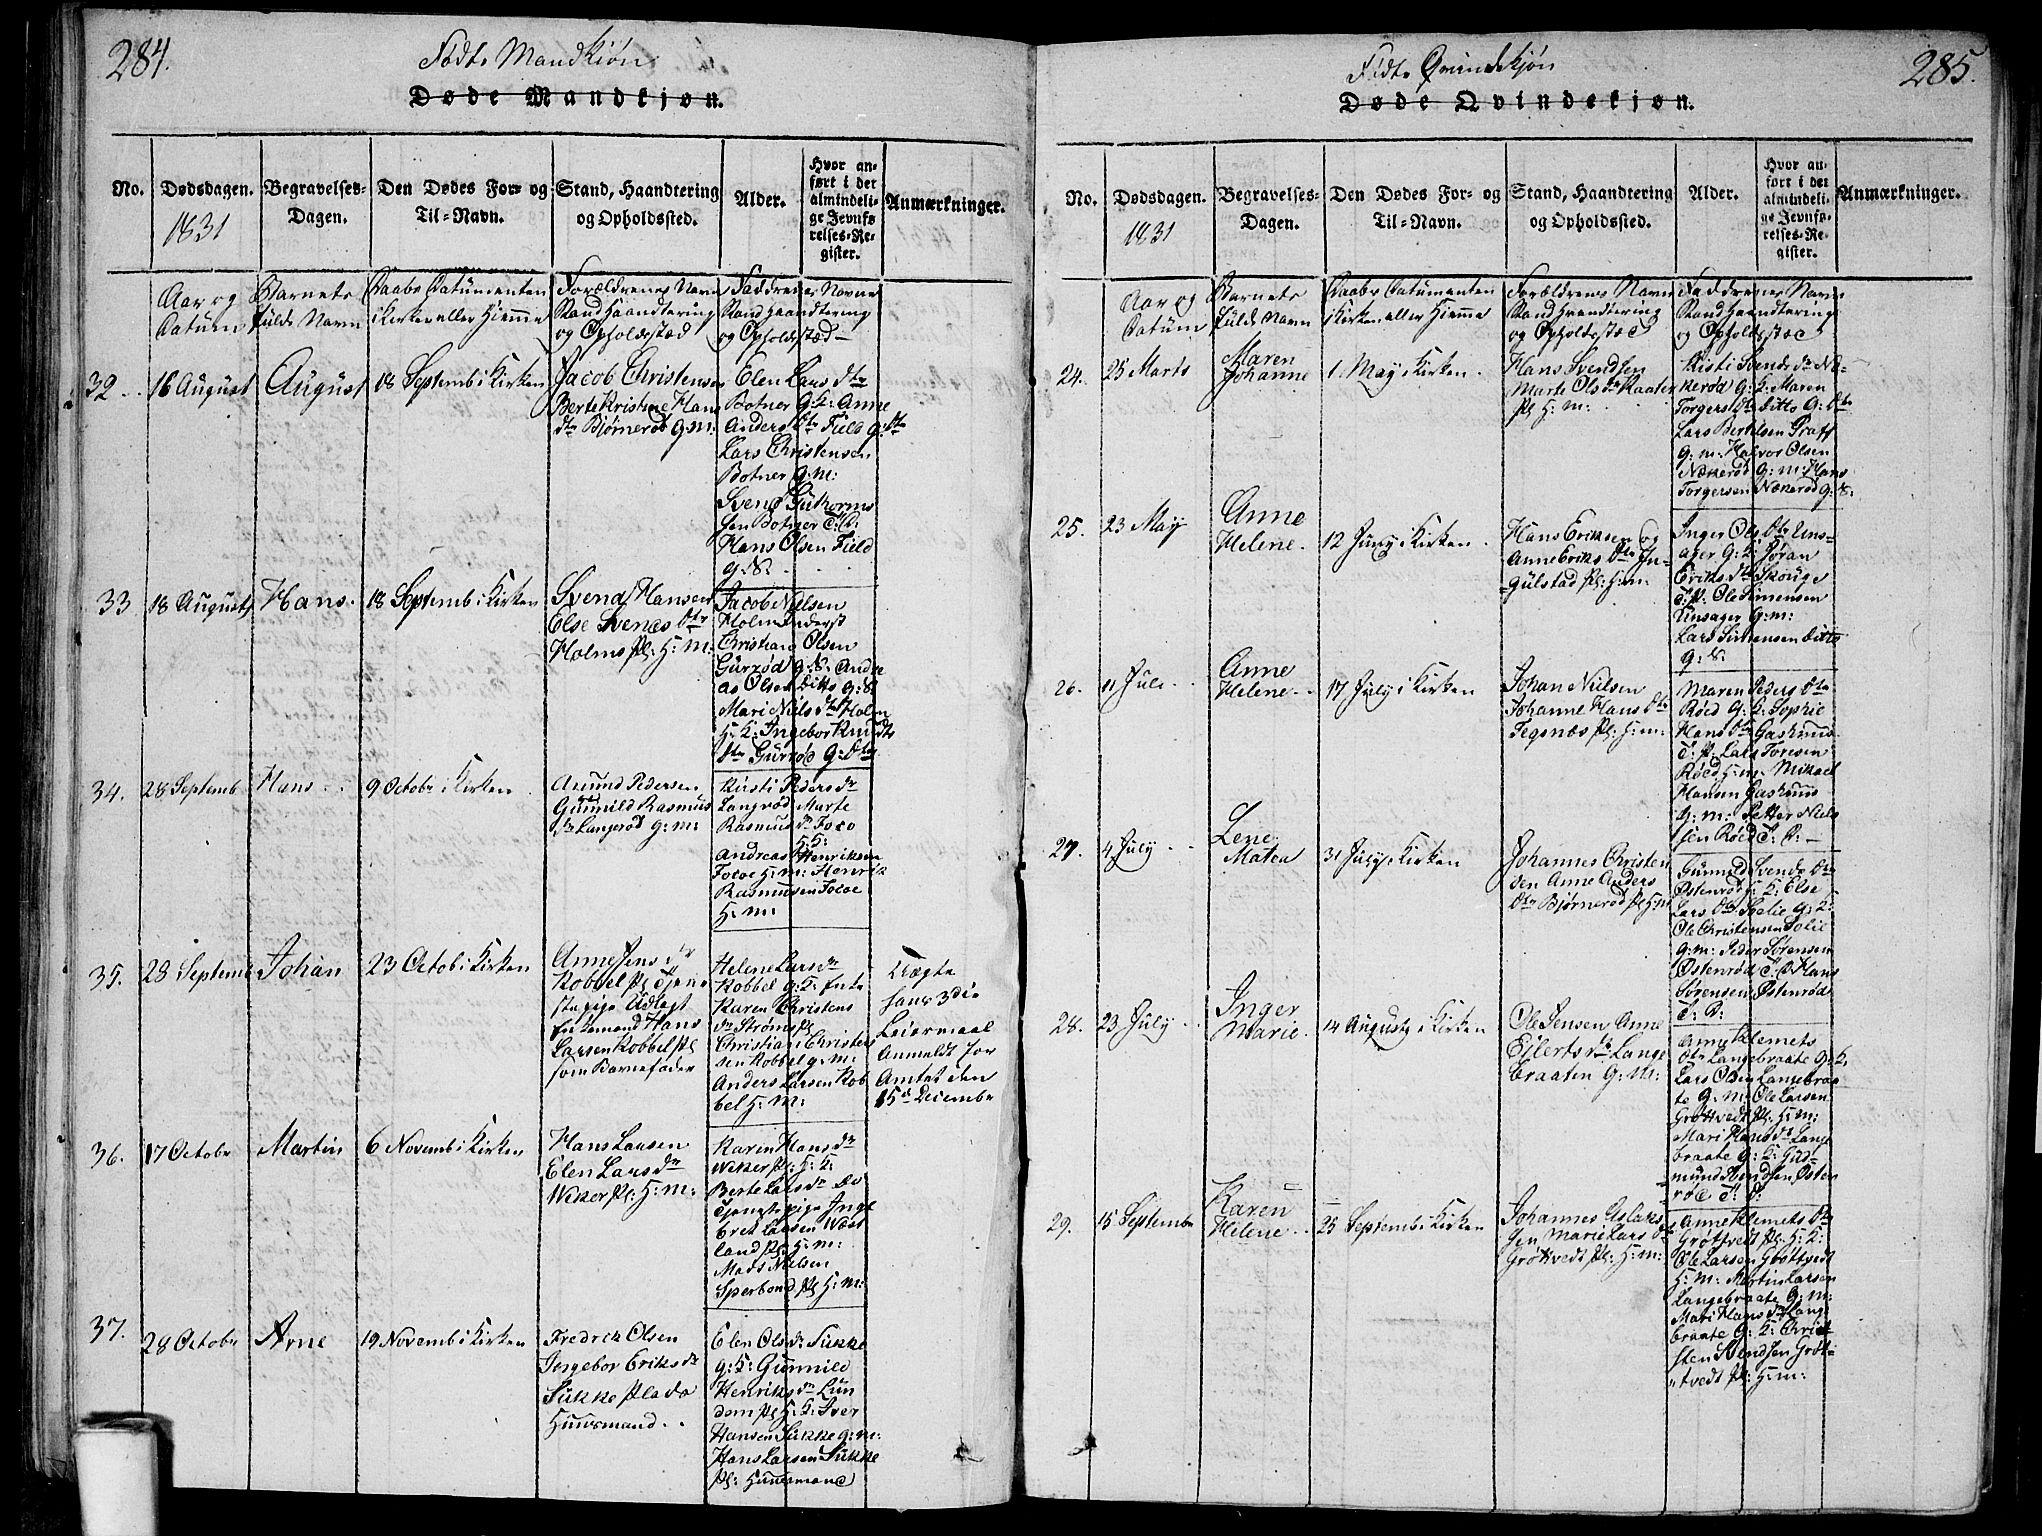 284.
Fødte Mandkiøn
Døde Mandkjøn.
No.
Dødsdagen.
1831
Begravelses-
Dagen.
Den Dødes For- og
Til-Navn.
Stand, Haandtering
og Opholdssted.
Alder.
Hvor an-
ført i det
almindeli-
ge Jevnfø-
relses-Re-
gister.
Anmærkninger.
Aar og
Datum
Barnets
fulde Navn
Daabs Datum enten
i Kirken eller Hiemme
Forældrenes Navn
Stand Haandtering
og Opholdssted
Faddrenes Navne
Stand Haandtering
og Opholdssted
32.
16 August
August
18 Septemb i Kirken
Jacob Christensen
Berte Kristine Hans
dtr Bjørnerød g:M:
Elen Lars dtr
Botner g:K: Anne
Anders dtr Field g: dtr
Lars Christensen
Botner g:M:
Svend Guthorms
sen Botner T: D:
Hans Olsen Field
g: S:
33
18 August
Hans.
18 Septemb i Kirken
Svend Hansen
Else Svends dtr
Holms pl: H: M:
Jacob Nielsen
Holm
Christian Olsen
Gurrød g: S: Andre
as Olsen ditto g: S:
Mari Niels dtr Holm
H: K: Ingebor Knudts
dtr Gurrød g: dtr
34.
28 Septemb
Hans
9 Octobr i Kirken
Amund Pedersen
Gunnild Rasmus
dr Langerød g: m:
Kirsti Peders dr
Langrød Marte
Rasmus dr Foco
H: K:
Andreas Henriksen
Focoe H: m: Henrik
Rasmussen Focoe
H: m:
35.
28 Septemb
Johan
23 Octob i Kirken
Anne Jens dr
Kobbel pl Tjene
stepige Udlagt
Larsen Kobbel pl
som Barnefader
Helene Lars dr
Kobbel g: K:
Karen Christens
dr Strøms pl
Christian Christen
sen Kobbel g: m:
Anders Larsen Kob
bel H: m:
Uægte
hans 3die
Leiermaal
Anmeldt for
Amtet den
15d Decembr
36.
17 Octobr
Martin
6 Novemb i Kirken
Hans Larsen
Elen Lars dr
Wiker pl: H: M:
Karen Hans dr
Wiker pl: H: K:
Berte Lars dr do
Tjenestepige Inge
bret Larsen West
land pl: H: m:
Mads Nielsen
Sperbond pl H: M:
37.
28 Octobr
Arne
19 Novemb i Kirken
Fredrik Olsen
Ingebor Eriks dr
Sukke Plads
Huusmand
Elen Ols dr Sukke
g: K: Gunnild
Henriks dr Lun
dem pl H: K: Iver
Hansen Sukke g: m:
Hans Larsen Sukke
pl: Huusmand
285.
Fødte Qvindekjøn
Døde Qvindekjøn.
No.
Dødsdagen.
1831
Begravelses-
Dagen.
Den Dødes For- og
Til-Navn.
Stand, Haandtering
og Opholdssted.
Alder.
Hvor an-
ført i det
almindeli-
ge Jevnfø-
relses-Re-
gister.
Anmærkninger.
Aar og
Datum
Barnets
fulde Navn
Daabs Datum enten
i Kirken eller Hiemme
Forældrenes Navn
Stand Haandtering
og Opholdssted
Faddrenes Navn
Stand Haandtering
og Opholdssted
24.
25 Marts
Maren
Johanne
1 May i Kirken.
Hans Svendsen
Marte Ols dtr Kaater
pl H: m:
Kirsti Svends dr Næ-
kerød g: K: Maren
Torgers dtr ditto g: dtr
Lars Bertelsen Graff
g: m: Halvor Olsen
Nækerød g: m: Hans
Torgersen Nækerød g: S:
25.
23 May
Anne
Helene.
12 Juny i Kirken
Hans Eriksen og
Anne Eriks dtr In-
gulstad pl: H: m:
Inger Ols dtr Uns-
ager g: K: Jøran
Eriks dtr Skouge
T: P: Ole Simensen
Unsager g: m:
Lars Simensen ditto
g: S:
26.
11 Juli
Anne
Helene.
17 July i Kirken
Johan Nielsen
Johanne Hans dtr
Tegnæs pl: H: m:
Maren Peders dtr
Røed g: K: Sophie
Hans dtr
T: P: Lars Toresen
Røed H: m: Mikael
Hansen
g: m: Petter Niels
sen Røed T: D: –
27.
4 July
Lene
Maten
31 July i Kirken
Johannes Christen
sen Anne Anders
dtr Bjørnerød pl H: m
Gunild Svends dtr
Østenrød H: K: Else
Lars dtr Solie g: K:
Ole Christensen Solie
g: m: Peder Sørensen
Østenrød T: D: Hans
Sørensen Østenrød
T: D:
28.
23 July
Inger
Marie.
14 August i Kirken
Ole Jensen Anne
Eilerts dtr Lange
braaten g: M:
Anne Klemets
dtr Langebraate g: K:
Lars Olsen Langebraa
te g: m: Ole Larsen
Grøttvedt pl: H: m:
Mari Hans dtr Lange
braate g: K: Gud-
mund Svendsen Østen
rød T: D:
29.
15 Septembr
Karen
Helene
25 Septemb i Kirken
Johannes Aslaks
sen Marie Lars dr
Grøttvedt pl: H: m:
Anne Klemets dtr
Grøttvedt pl: H: K:
Ole Larsen Grøttvedt
H: m: Martin Larsen
Langebraate g: m:
Mari Hans dr Lange
braate g: K: Chris
ten Svendsen Grøt-
tvedt pl: H: m: